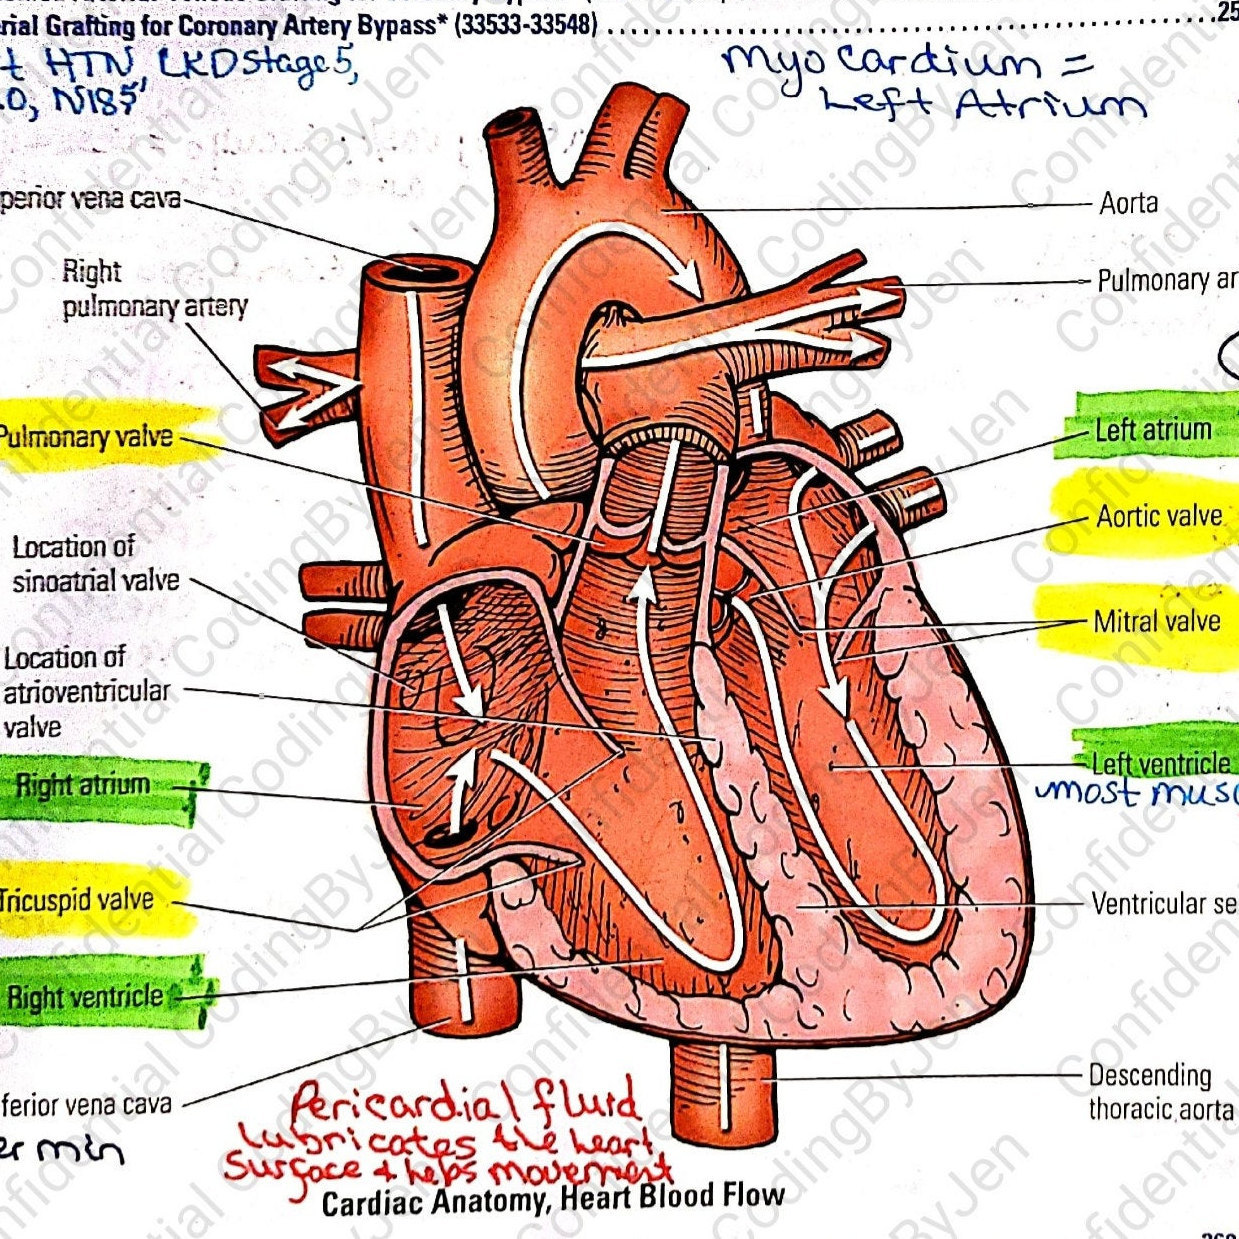 rial Grafting for Coronary Artery Bypass* (33533-33548)
25
t HTN, CKD Stage 5,
.0, N185
Myocardium =
Left Atrium
perior vena cava
Aorta
Right
pulmonary artery
Pulmonary ar
Pulmonary valve
Left atrium
Aortic valve
Location of
sinoatrial valve
Mitral valve
Location of
atrioventricular
valve
Left ventricle
most musc
Right atrium
Tricuspid valve
Ventricular se
Right ventricle
Descending
thoracic aorta
ferior vena cava
er min
Pericardial fluid
lubricates the heart
surface & helps movement
Cardiac Anatomy, Heart Blood Flow
Confidential CodingByJen